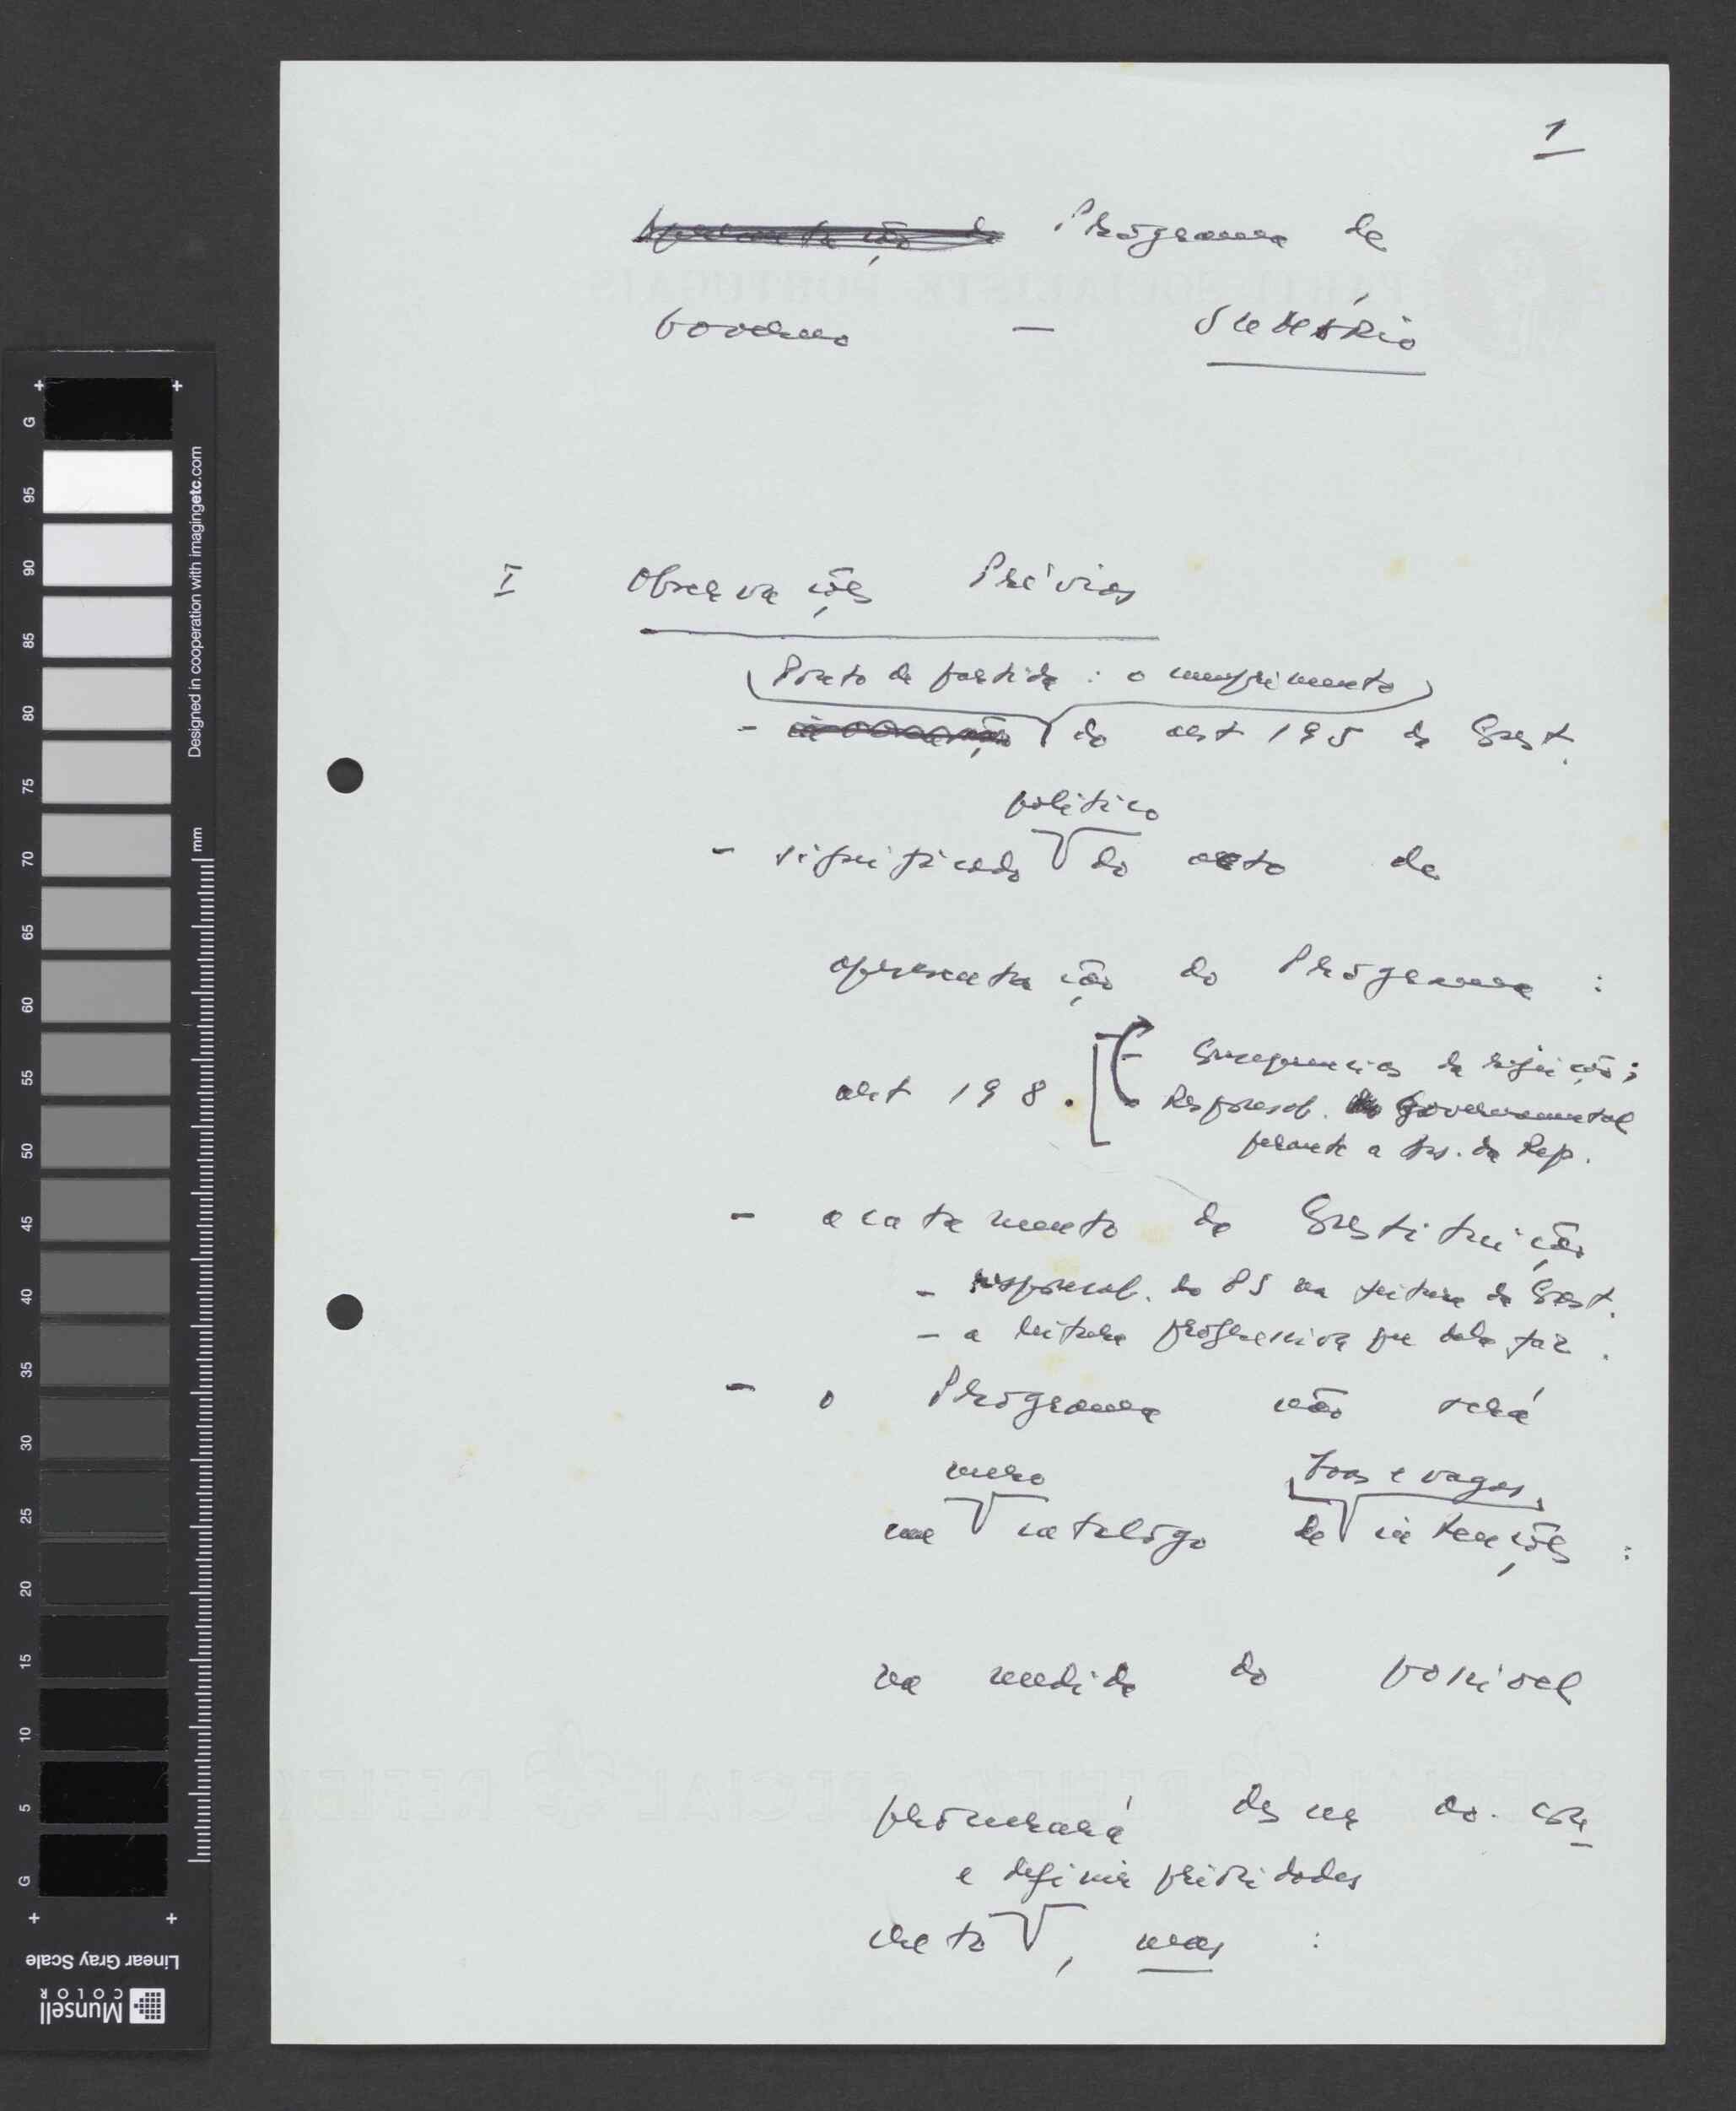 1
Programa de
Governo — Sumário
I Observações Prévias
Ponto de partida : o cumprimento
- do art 195 da Const.
político
- significado do acto de
apresentação do Programa :
art 198.
- Consequencias da rejeição;
Responsab. governamental
perante a Ass. da Rep.
- acatamento da Constituição
- responsab. do PS na feitura da Const.
- a leitura progressiva que dela faz.
- o Programa não será
mero
boas e vagas
um catálogo de intenções :
na medida do possível
procurará descer ao con
e definir prioridades
creto, mas :
G
95
90
85
80
75
70
65
60
55
50
45
40
35
30
25
20
15
10
5
G
Designed in cooperation with imagingetc.com
mm
Linear Gray Scale
Munsell
COLOR
PARTI SOCIALISTE PORTUGAIS